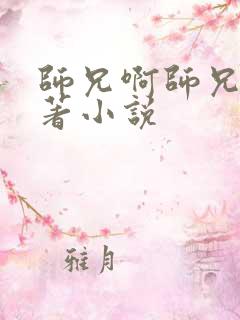 師兄啊師兄
著小説
雅月